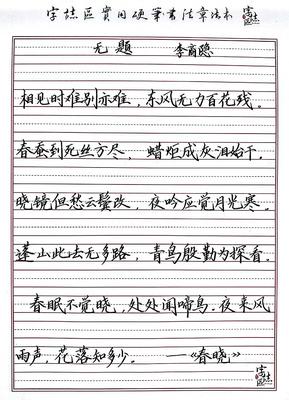 字誌區實用硬筆書法章法本
字誌區
无题 李商隐
相见时难别亦难，东风无力百花残。
春蚕到死丝方尽，蜡炬成灰泪始干，
晓镜但愁云鬓改，夜吟应觉月光寒。
蓬山此去无多路，青鸟殷勤为探看。
春眠不觉晓，处处闻啼鸟.夜来风
雨声，花落知多少。——《春晓》
字誌區